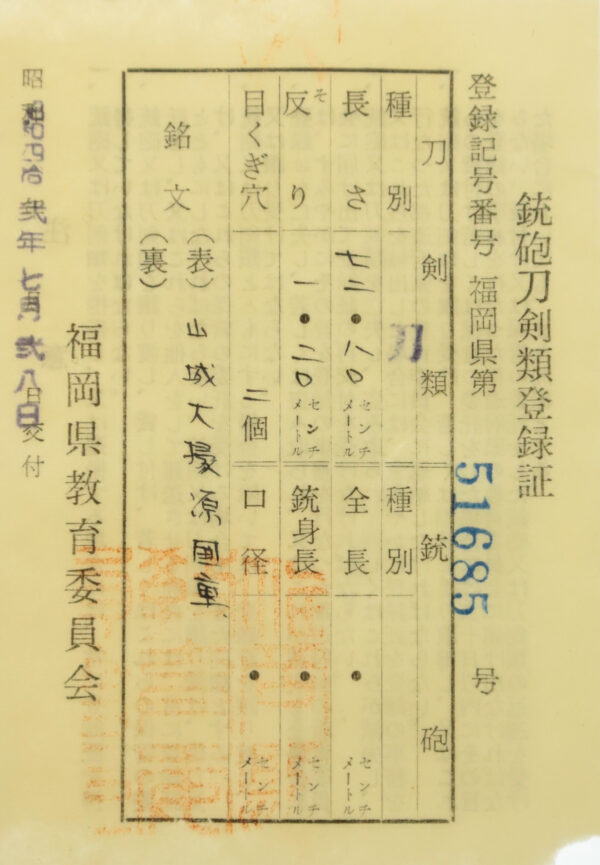 銃砲刀剣類登録証
登録記号番号 福岡県第 51685 号
刀剣類 銃砲
種別 刀 種別
長さ 七二・八〇 センチメートル 全長 ・ センチメートル
反り そ 一・二〇 センチメートル 銃身長 ・ センチメートル
目くぎ穴 二個 口径 ・ センチメートル
銘文 (表) 山城大掾源国重
(裏)
昭和四拾弐年七月弐八日交付
福岡県教育委員会